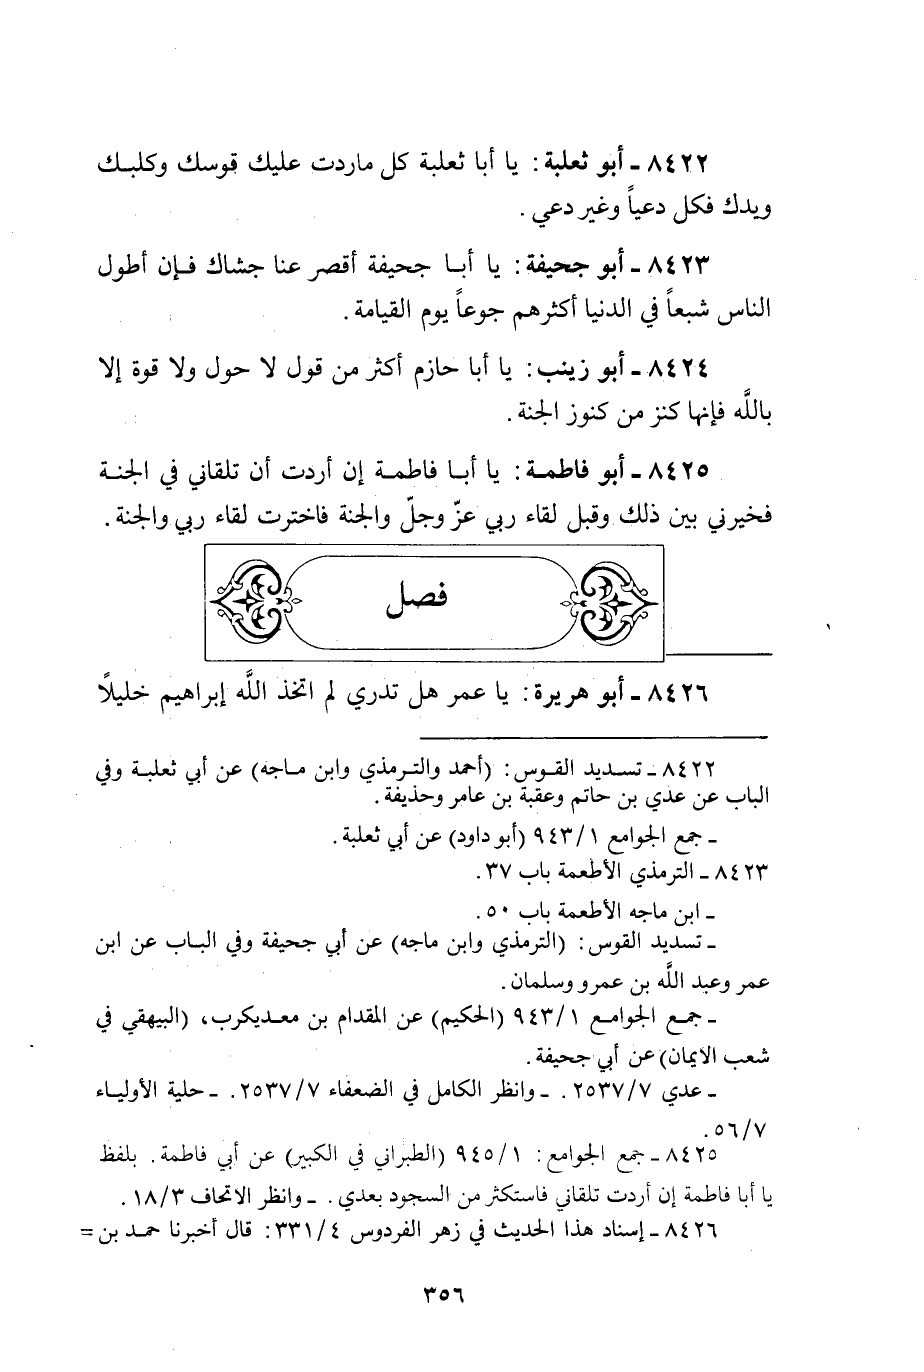 ٨٤٢٢ ـ أبو ثعلبة : يا أبا ثعلبة كل ماردت عليك قوسك وكلبك
ويدك فكل دعياً وغير دعي .
٨٤٢٣ ـ أبو جحيفة : يا أبا جحيفة أقصر عنا جشاك فإن أطول
الناس شبعاً في الدنيا أكثرهم جوعاً يوم القيامة .
٨٤٢٤ ـ أبو زينب : يا أبا حازم أكثر من قول لا حول ولا قوة إلا
باللَّه فإنها كنز من كنوز الجنة .
٨٤٢٥ ـ أبو فاطمة : يا أبا فاطمة إن أردت أن تلقاني في الجنة
فخيرني بين ذلك وقبل لقاء ربي عزّ وجلّ والجنة فاخترت لقاء ربي والجنة .
فصل
٨٤٢٦ ـ أبو هريرة : يا عمر هل تدري لم اتخذ اللَّه إبراهيم خليلاً
٨٤٢٢ ـ تسديد القوس : (أحمد والترمذي وابن ماجه) عن أبي ثعلبة وفي
الباب عن عدي بن حاتم وعقبة بن عامر وحذيفة .
ـ جمع الجوامع ٩٤٣/١ (أبو داود) عن أبي ثعلبة .
٨٤٢٣ ـ الترمذي الأطعمة باب ٣٧ .
ـ ابن ماجه الأطعمة باب ٥٠ .
ـ تسديد القوس : (الترمذي وابن ماجه) عن أبي جحيفة وفي الباب عن ابن
عمر وعبد اللَّه بن عمرو وسلمان .
ـ جمع الجوامع ٩٤٣/١ (الحكيم) عن المقدام بن معديكرب، (البيهقي في
شعب الايمان) عن أبي جحيفة .
ـ عدي ٢٥٣٧/٧ . ـ وانظر الكامل في الضعفاء ٢٥٣٧/٧ . ـ حلية الأولياء
٥٦/٧ .
٨٤٢٥ ـ جمع الجوامع : ٩٤٥/١ (الطبراني في الكبير) عن أبي فاطمة . بلفظ
يا أبا فاطمة إن أردت تلقاني فاستكثر من السجود بعدي . ـ وانظر الاتحاف ١٨/٣ .
٨٤٢٦ ـ إسناد هذا الحديث في زهر الفردوس ٣٣١/٤ : قال أخبرنا حمد بن =
٣٥٦